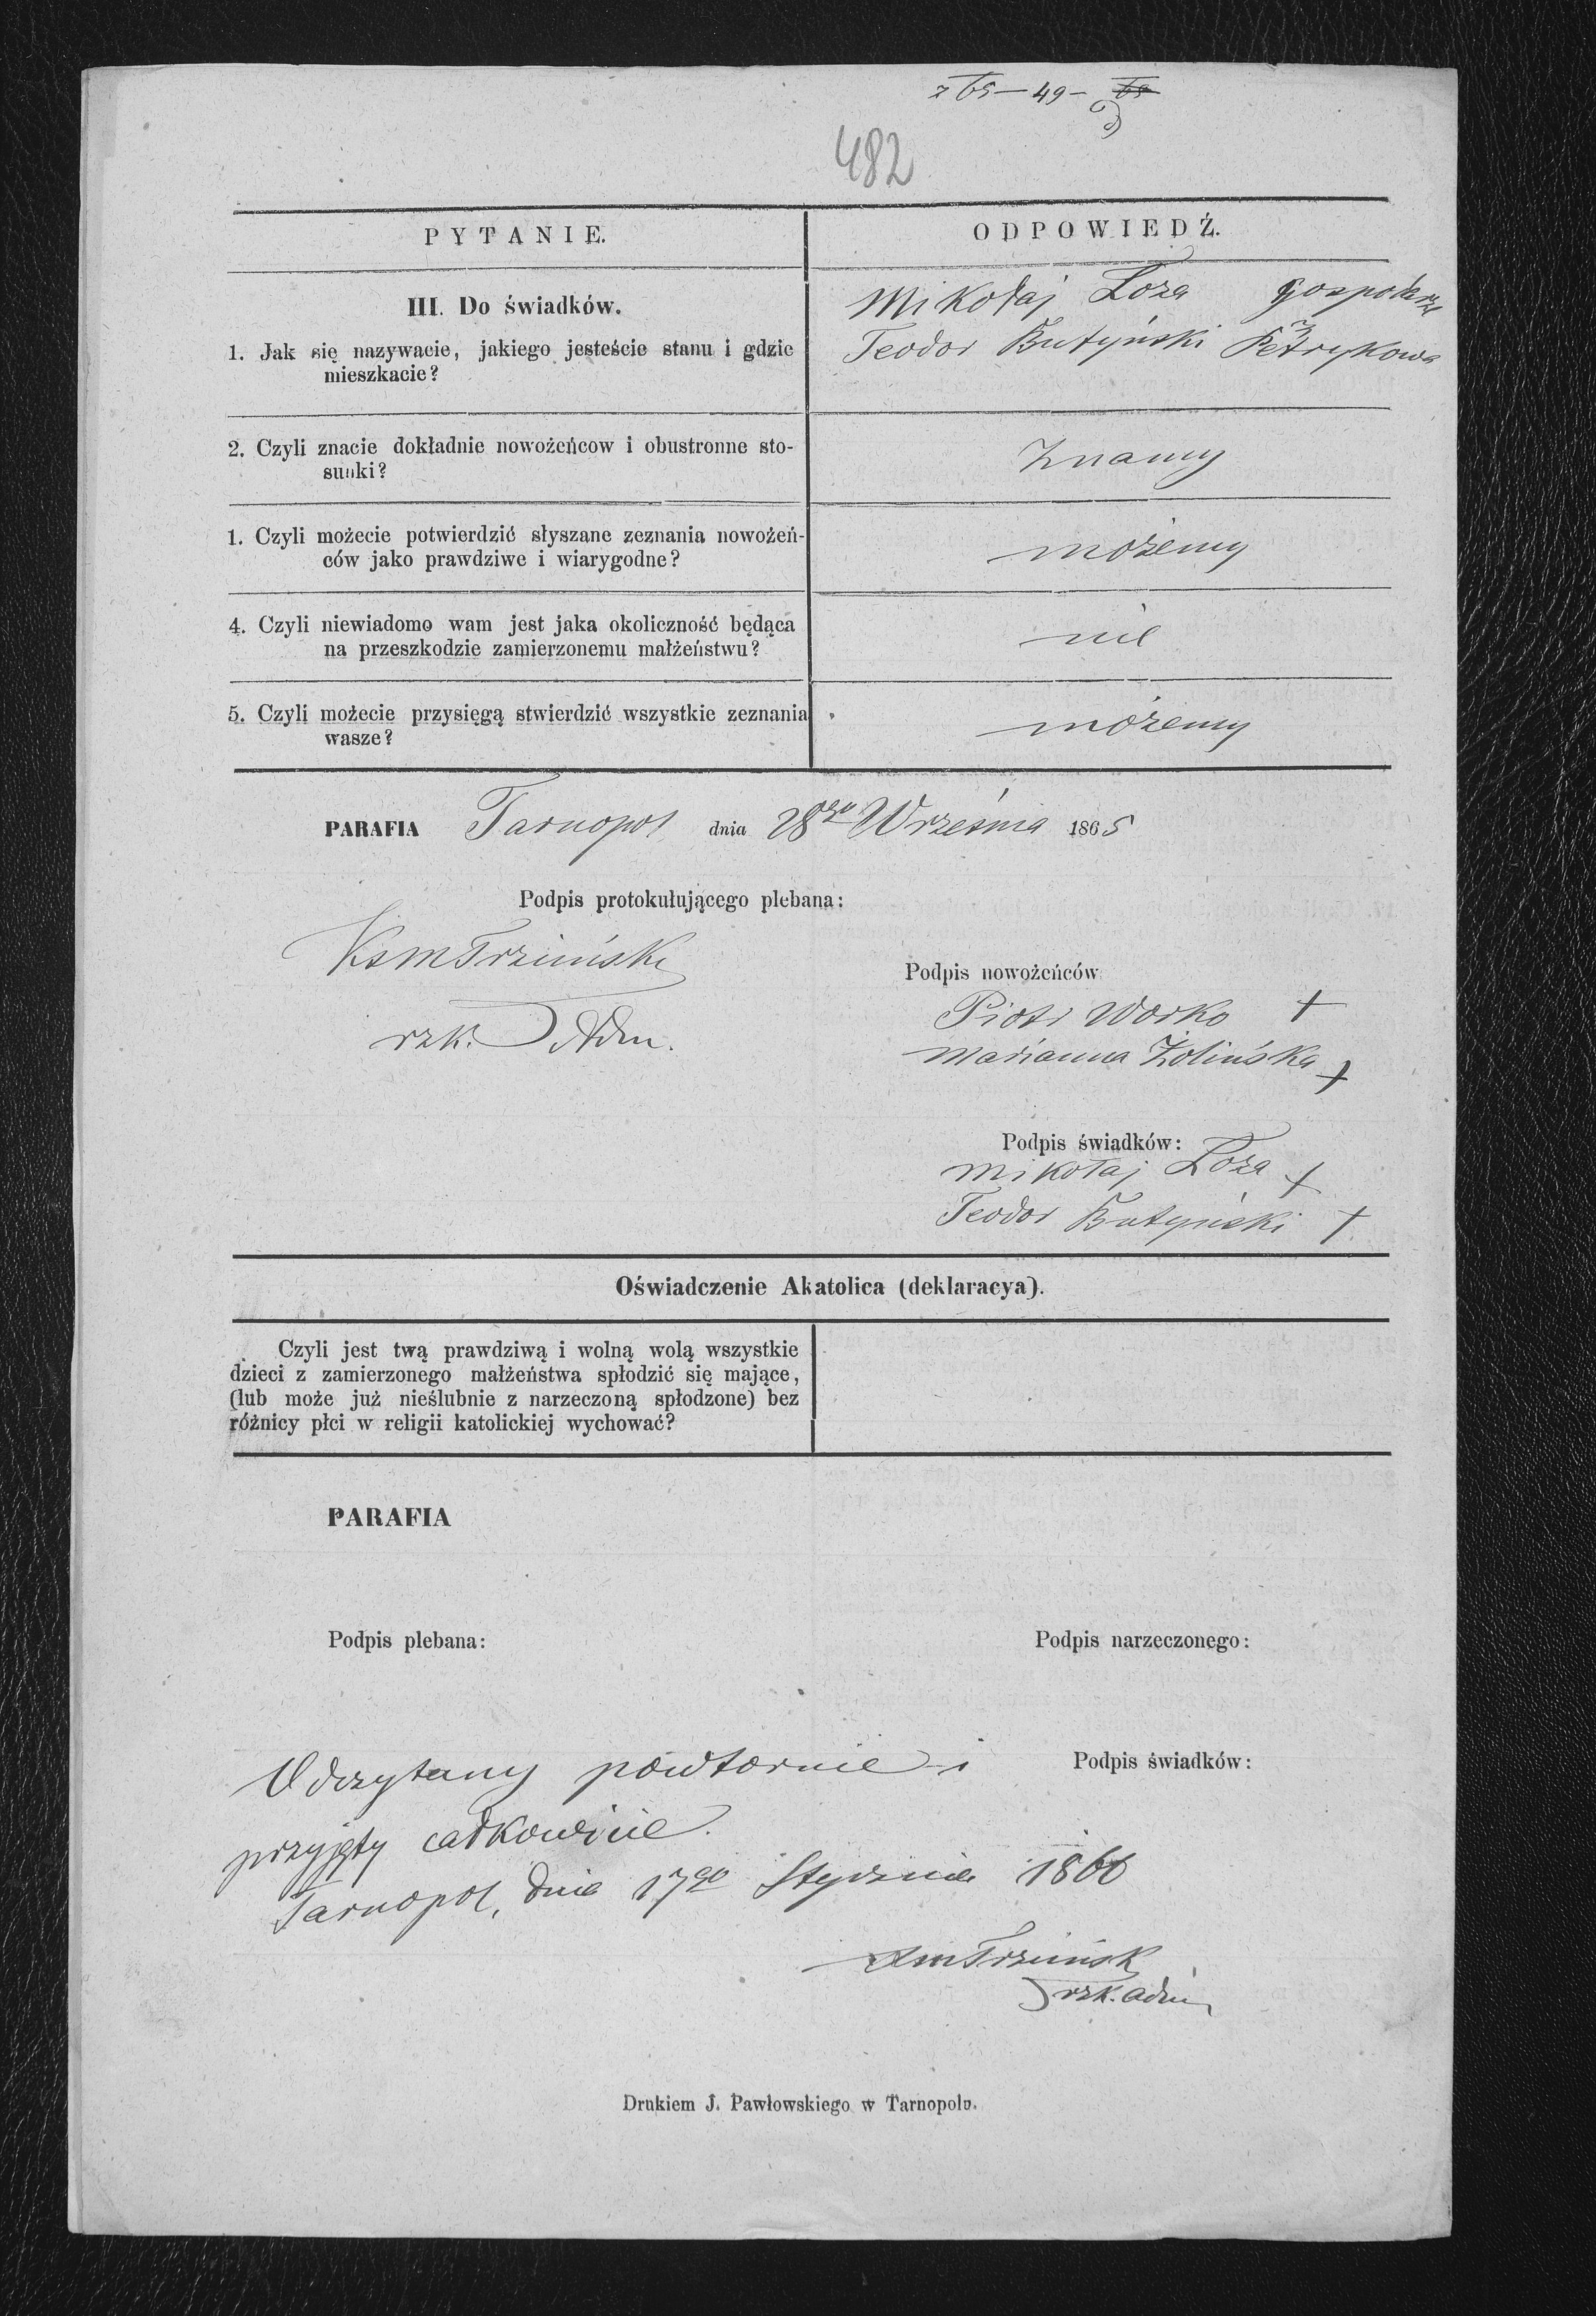 482
PYTANIE.
ODPOWIEDŹ.
III. Do świadków.
1. Jak się nazywacie, jakiego jesteście stanu i gdzie
mieszkacie?
Mikołaj Łoza gospodarze
Teodor Butyński z Petrykowa
2. Czyli znacie dokładnie nowożeńcow i obustronne sto-
sunki?
Znamy
1. Czyli możecie potwierdzić słyszane zeznania nowożeń-
ców jako prawdziwe i wiarygodne?
możemy
4. Czyli niewiadomo wam jest jaka okoliczność będąca
na przeszkodzie zamierzonemu małżeństwu?
nie
5. Czyli możecie przysięgą stwierdzić wszystkie zeznania
wasze?
możemy
PARAFIA Tarnopol dnia 28go Września 1865
Podpis protokułującego plebana:
rzk. Adm.
Podpis nowożeńców
Piotr Worko +
Marianna Żolińska +
Podpis świadków:
Mikołaj Łoza +
Teodor Butyński +
Oświadczenie Akatolica (deklaracya).
Czyli jest twą prawdziwą i wolną wolą wszystkie
dzieci z zamierzonego małżeństwa spłodzić się mające,
(lub może już nieślubnie z narzeczoną spłodzone) bez
różnicy płci w religii katolickiej wychować?
PARAFIA
Podpis plebana:
Podpis narzeczonego:
Podpis świadków:
Odczytany powtornie i
przyjęty całkowicie.
Tarnopol, dnia 17go Stycznia 1866
rzk. adm
Drukiem J. Pawłowskiego w Tarnopolu.